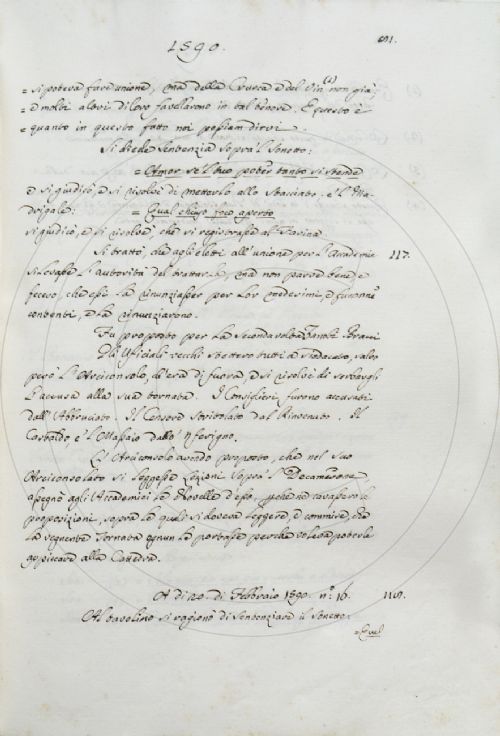 1590.
51.
= si poteva fare unione, ma della Crusca e del Vin (a) non già
= e molti altri di loro favellarono in tal tenore. E questo è
= quanto in questo fatto noi possiam dirvi.
Si diede Sentenzia sopra 'l Sonetto:
= Amor se 'l tuo poter tanto si stende
e si giudicò, e si risolvé di metterlo allo Stacciato. e 'l Ma-
drigale: = Qual chiuso foco aperto
si giudicò, e si risolvé, che si registrasse al Farina.
Si trattò, che agli eletti all'unione per l'Accademie 117.
si levasse l'Autorità del trattarla, ma non parve bene, e
fecesi, che essi la rinunziasser per lor medesimi, e furonne
contenti, e la rinunziarono.
Fu proposto per la seconda volta Bardi
Gli Ufficiali vecchi stettero tutti a Sindacato, salvo
però l'Arciconsolo, ch'era di fuora, e si risolvé di serbargli
l'accusa alla sua tornata. I Consiglieri furono accusati
dall'Abbruciato. Il Censore Stritolato dal Rinvenuto. Il
Castaldo, e 'l Massaio dallo 'Nferigno.
L'Arciconsolo avendo proposto, che nel suo
Arciconsolato si leggesse Lezioni sopra 'l Decamerone,
assegnò agli Accademici le Novelle d'esso, perché ne cavassero le
proposizioni, sopra le quali si doveva leggere, e commise, che
la vegnente Tornata ognun la portasse perché voleva poterle
appiccare alla Cattedra.
A dì 20. di Febbraio 1590. n.° 16. 118.
Al tavolino si ragionò di sentenziare il Sonetto.
= Qual